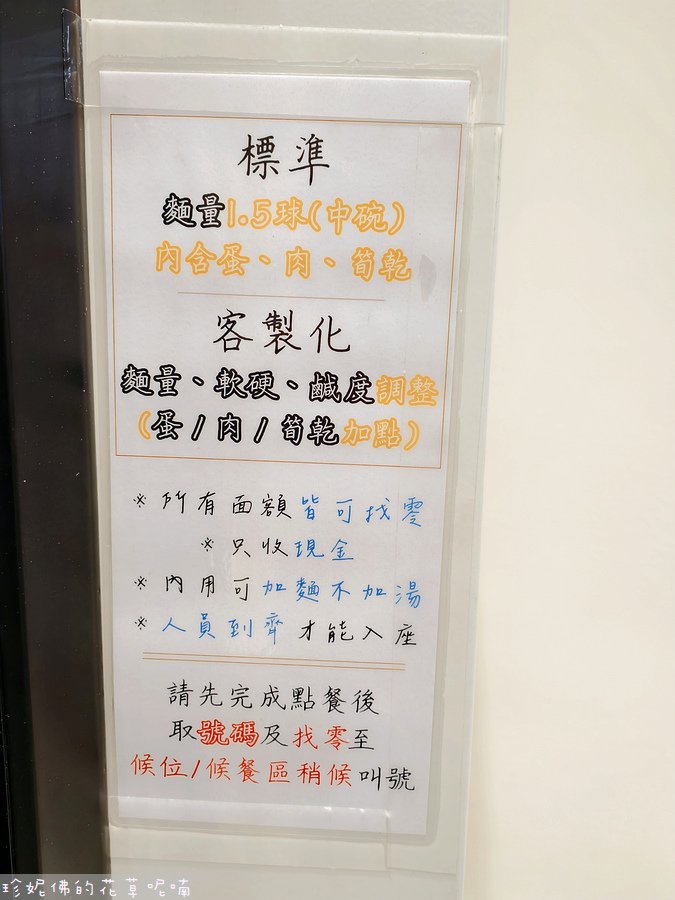 標準
麵量1.5球(中碗)
內含蛋、肉、筍乾
客製化
麵量、軟硬、鹹度調整
(蛋/肉/筍乾加點)
※所有面額皆可找零
※只收現金
※內用可加麵不加湯
※人員到齊才能入座
請先完成點餐後
取號碼及找零至
候位/候餐區稍候叫號
珍妮佛的花草呢喃